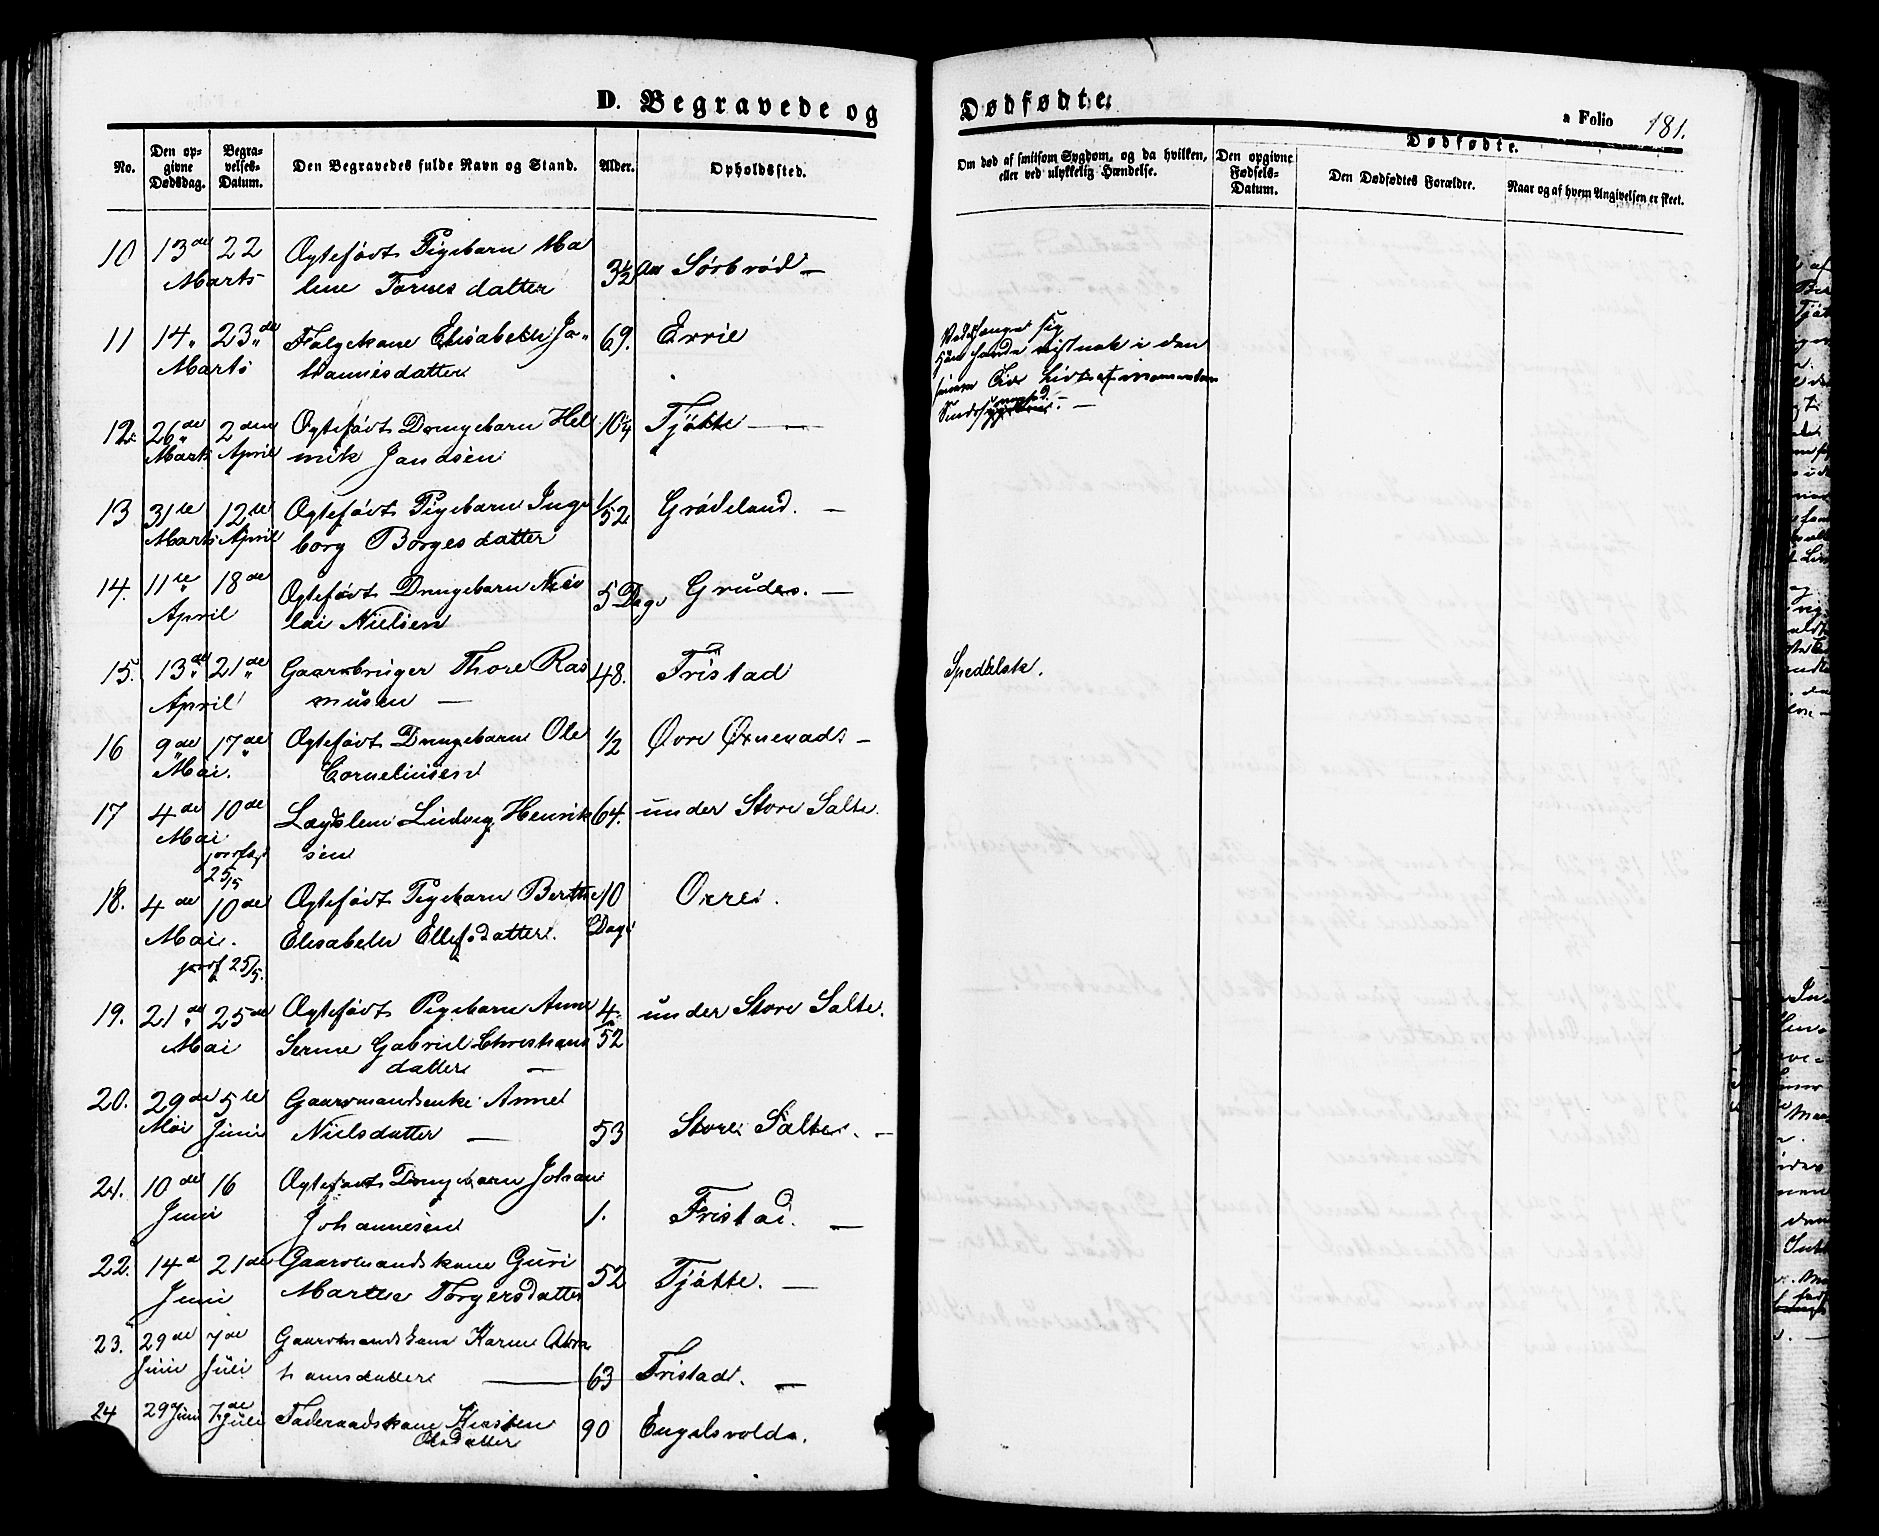 D. Begravede og Dødfødte.
a Folio 181.
No.
Den opgivne Dødsdag.
Begravelses-Datum.
Den Begravedes fulde Navn og Stand.
Alder.
Opholdssted.
Om død af smitsom Sygdom, og da hvilken, eller ved ulykkelig Hændelse.
Dødfødte.
Den opgivne Fødsels-Datum.
Den Dødfødtes Forældre.
Naar og af hvem Angivelsen er skeet.
10 13de 22 Ægtefødt Pigebarn Ma
Marts lene Tornes datter 3½ Aar Sørbrød —
11 14 23de Folgekone Elisabeth Jo- 69. Errie
Marts hannesdatter
12. 26de 2den Ægtefødt Drengebarn Hel 10¼ Tjøtte —
Marts April mik Jandsen
13 31te 12te Ægtefødt Pigebarn Inge 1/52 Grødeland. —
Marts April borg Børgesdatter
14. 11te 18de Ægtefødt Drengebarn Nico 5 Dage Grudes. —
April lai Nielsen
15. 13de 21de Gaardbruger Thore Ras 48. Fristad Spedalsk.
April musen —
16 9de 17de Ægtefødt Drengebarn Ole ½ Øvre Øxnevadt —
Mai. Corneliusen
17 4de 10de Lægdslem Ludvig Henrik 64. under Store Salte.
Mai sen
25/5
18. 4de 10de Ægtefødt Pigebarn Berthe 10 Orre.
Mai. Elisabeth Ellefsdatter. Dage
25/5.
19. 21de 25de Ægtefødt Pigebarn Anne 4/52 under Store Salte.
Mai Serine Gabriel Christians
datter —
20. 29de 5te Gaardmandsenke Anne
Mai Juni Nielsdatter — 53 Store Salte. —
21. 10de 16 Ægtefødt Drengebarn Johan
Juni Johannesen 1. Fristad. —
22. 14de 21de Gaardmandskone Guri 52 Tjøtte. —
Juni Marthe Torgersdatter
23. 29de 7de Gaardmandskone Karen Abra
Juni Juli hamsdatter — 63 Fristad. —
24 29 Juni 7de Juli Foderaadskone Kirsten 90 Engelsvolds.
Olsdatter